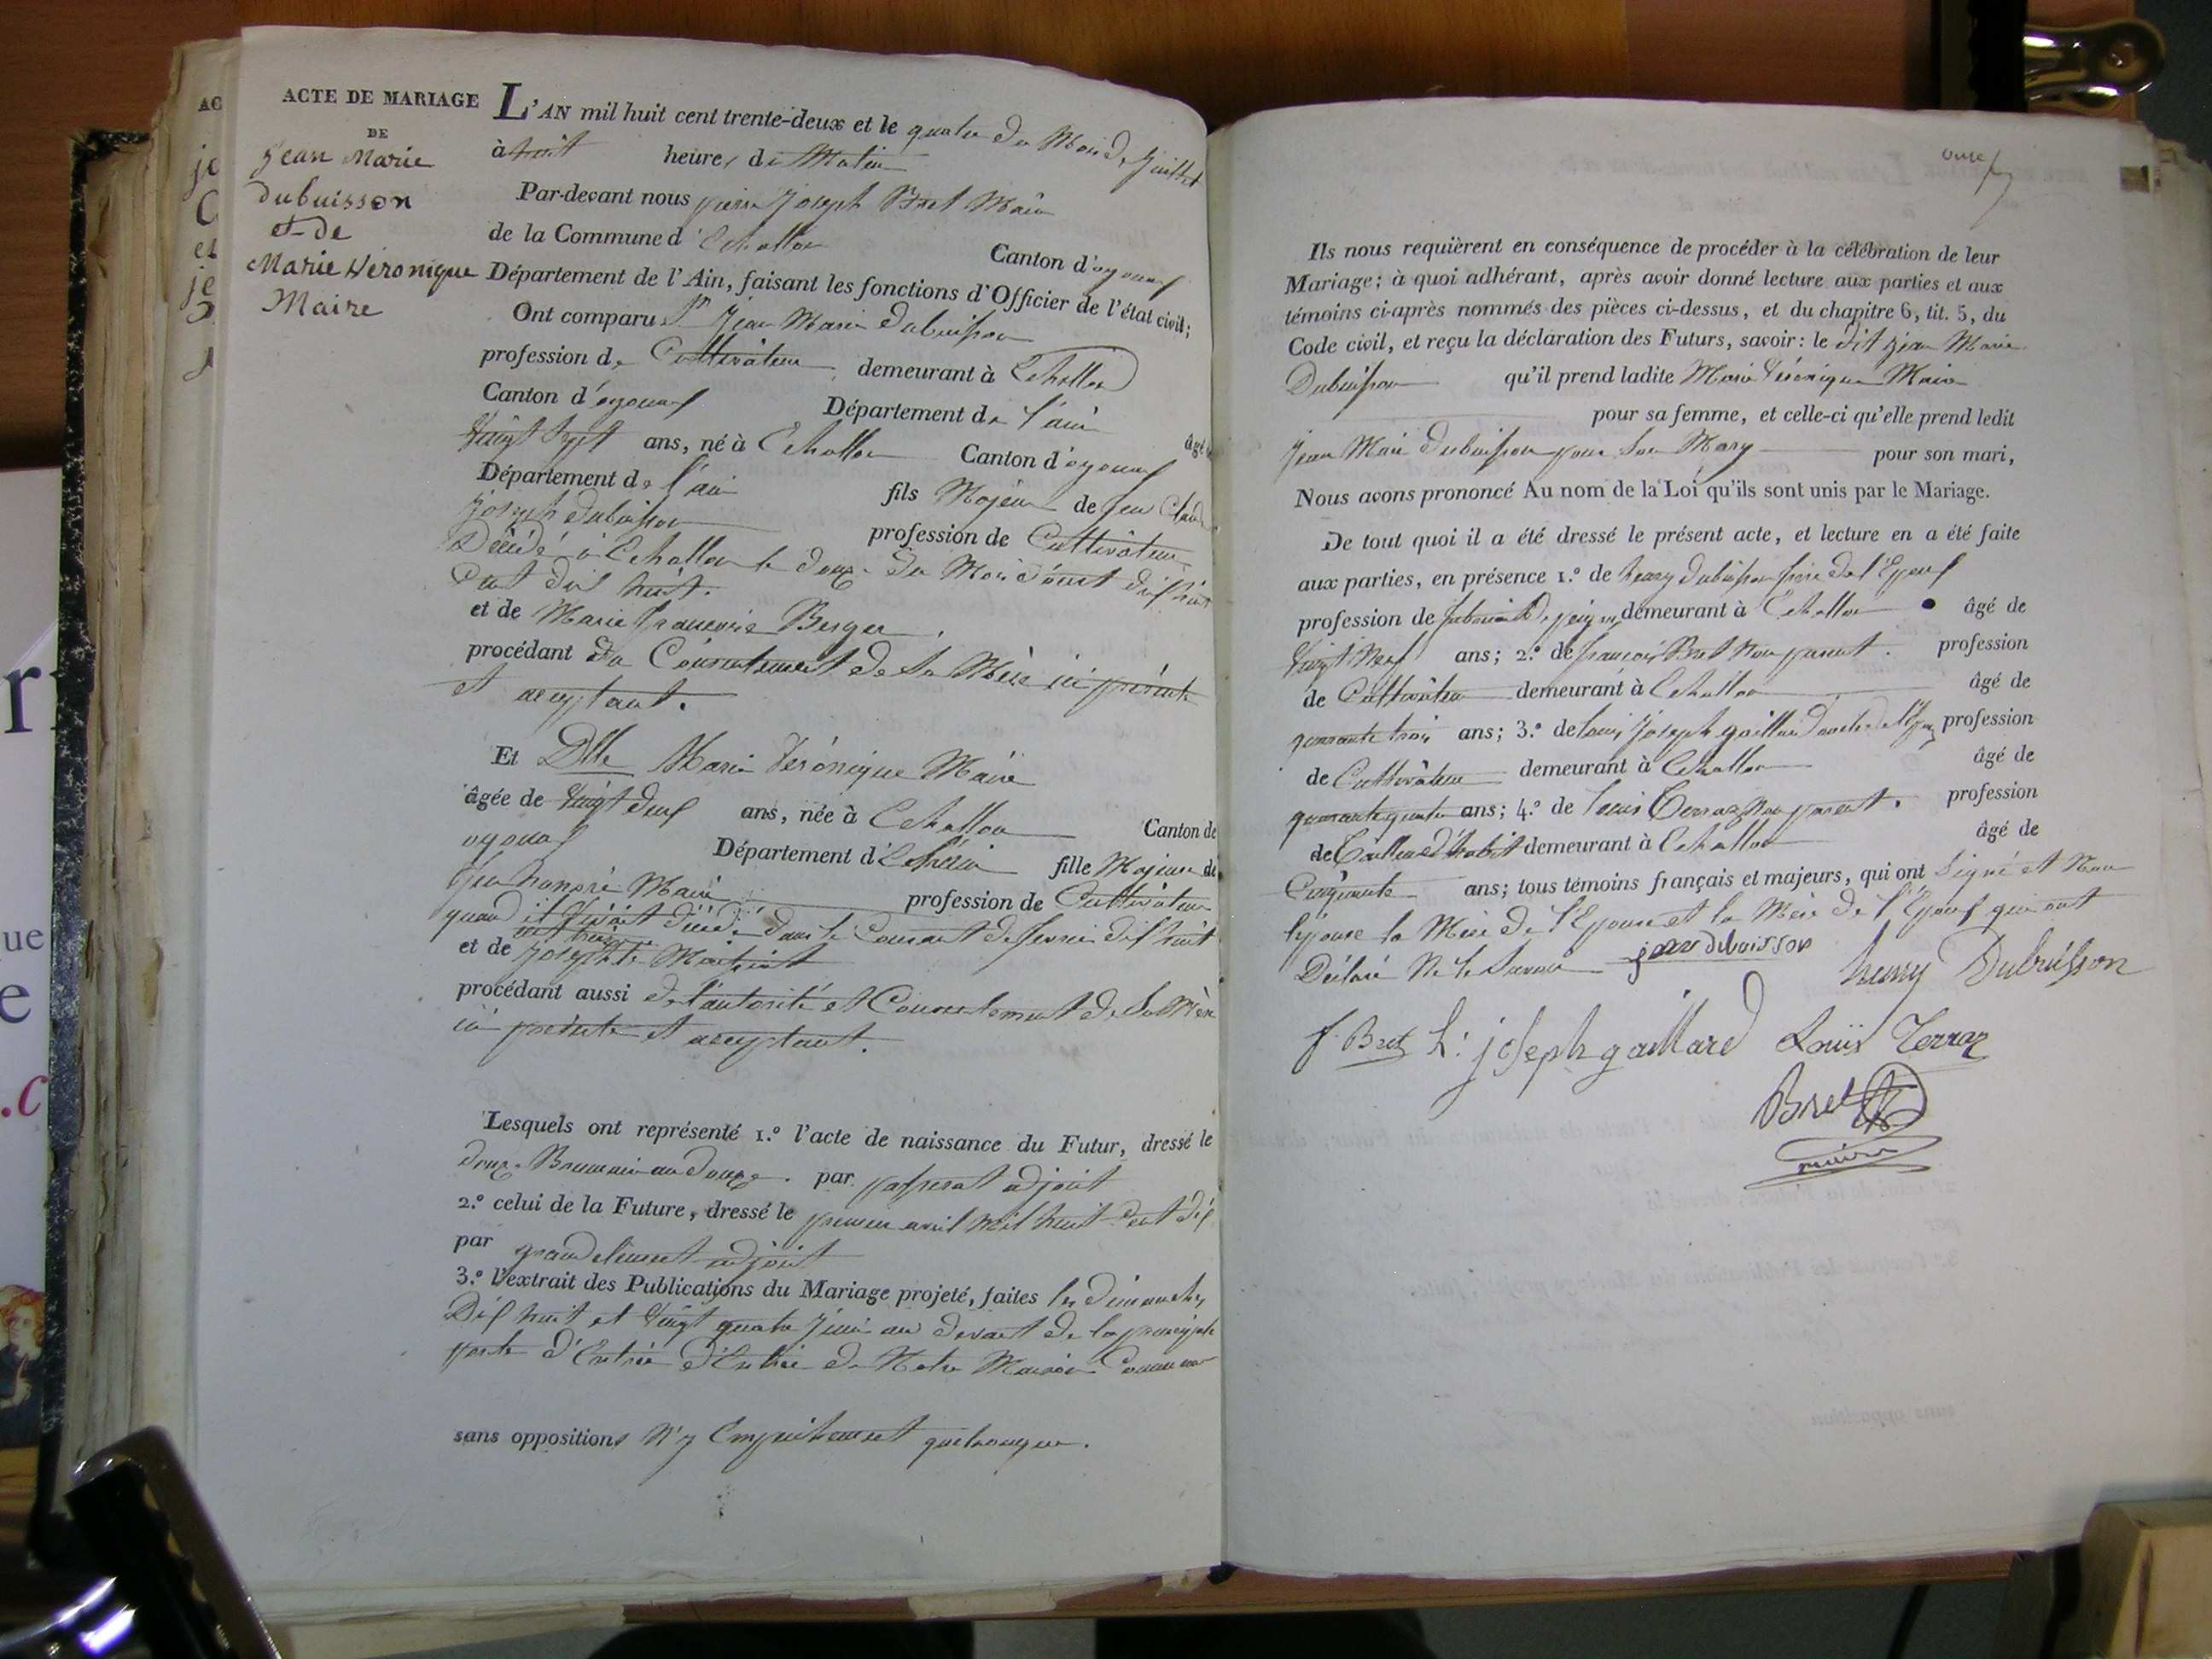 ACTE DE MARIAGE
DE
Jean Marie
dubuisson
et de
Marie Véronique
Maire
L'AN mil huit cent trente-deux et le quatre du Mois de Juillet
à huit heures du Matin
Par-devant nous pierre Joseph Bret Maire
de la Commune d'Echallon Canton d'oyonax
Département de l'Ain, faisant les fonctions d'Officier de l'état civil;
Ont comparu Sr Jean Marie Dubuisson
profession de Cultivateur demeurant à Echallon
Canton d'oyonax Département de l'ain âgé de
Vingt Sept ans, né à Echallon Canton d'oyonax
Département de l'ain fils Majeur de feu Claude
Joseph dubuisson profession de Cultivateur
Décédé à Echallon le douze du Mois d'aout dix huit
Cent dix huit.
et de Marie francoise Berger
procédant du Consentement de Sa Mère ici présente
et acceptant.
Et Dlle Marie Véronique Maire
âgée de Vingt deux ans, née à Echallon Canton de
oyonax Département d' fille Majeure de
feu honoré Maire profession de Cultivateur
quand il vivait décédé dans le Courant de fevrier dix huit
cent treize
et de Josephte
procédant aussi de l'autorité et Consentement de Sa Mère
ici présente et acceptant.
Lesquels ont représenté 1.° l'acte de naissance du Futur, dressé le
douze Brumaire an douze. par passerat adjoint
2.° celui de la Future, dressé le premier avril mil huit Cent dix
par grandclément adjoint
3.° l'extrait des Publications du Mariage projeté, faites les dimanches
Dix huit et Vingt quatre Juin au devant de la principale
porte d'Entrée d'Entrée de Notre Maison Commune
sans oppositions N'y Empechement quelconque.
onze
Ils nous requièrent en conséquence de procéder à la célébration de leur
Mariage; à quoi adhérant, après avoir donné lecture aux parties et aux
témoins ci-après nommés des pièces ci-dessus, et du chapitre 6, tit. 5, du
Code civil, et reçu la déclaration des Futurs, savoir: le dit Jean Marie
Dubuisson qu'il prend ladite Marie Véronique Maire
pour sa femme, et celle-ci qu'elle prend ledit
Jean Marie Dubuisson pour Son Mary pour son mari,
Nous avons prononcé Au nom de la Loi qu'ils sont unis par le Mariage.
De tout quoi il a été dressé le présent acte, et lecture en a été faite
aux parties, en présence 1.° de henry dubuisson frère de l'Epoux
profession de fabricant de peignes demeurant à Echallon âgé de
Vingt Neuf ans; 2.° de françois Bret Non parent. profession
de Cultivateur demeurant à Echallon âgé de
quarante trois ans; 3.° de louis Joseph gaillard oncle de l'Epoux profession
de Cultivateur demeurant à Echallon âgé de
quarante quatre ans; 4.° de louis Terraz Non parent. profession
de Tailleur d'habit demeurant à Echallon âgé de
Cinquante ans; tous témoins français et majeurs, qui ont Signé et Non
l'epouse la Mère de l'Epouse et la Mère de l'Epoux qui ont
Déclaré Ne le Savoir jean dubuisson henry Dubuisson
f. Bret L: joseph gaillard Louis Terraz
Bret
maire